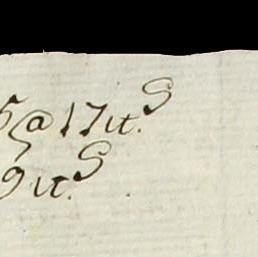 5@17 tt.S
9 tt.S